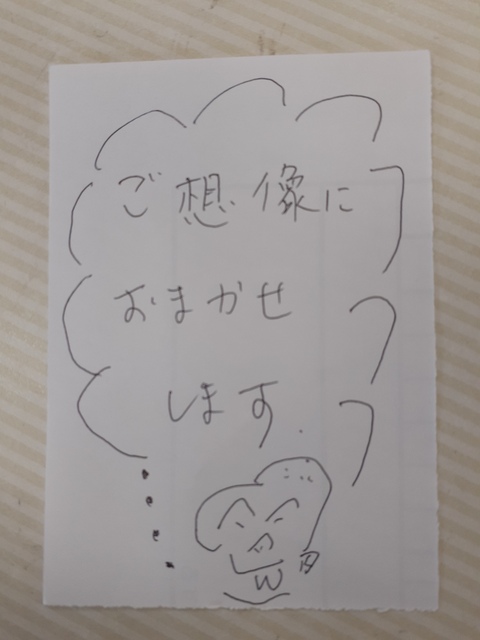 ご想像に
おまかせ
します.